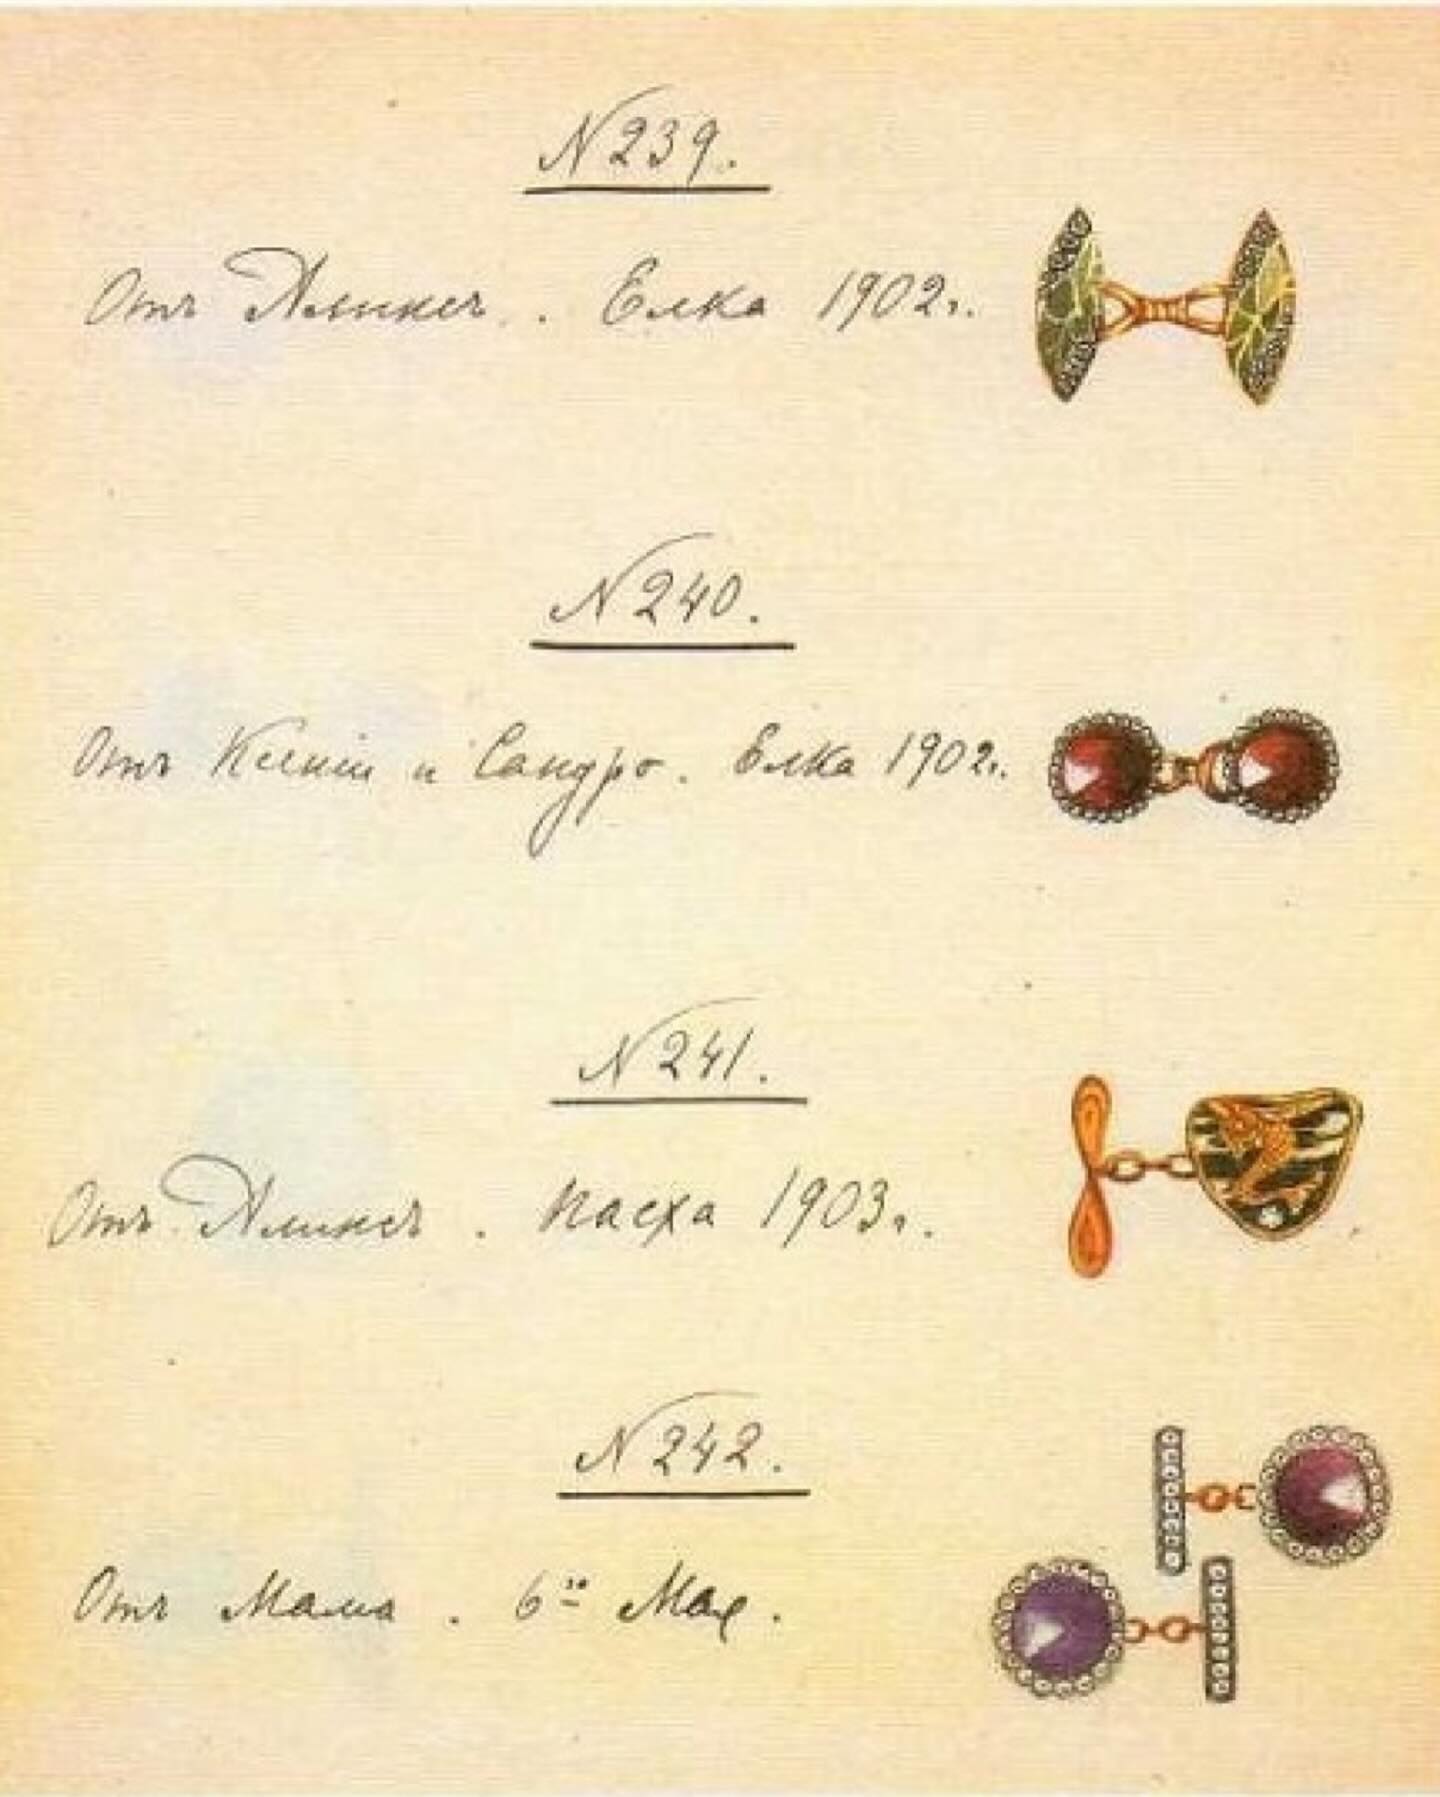 N 239.
Отъ Аликсъ. Елка 1902г.
N 240.
Отъ Ксеніи и Сандро. Елка 1902г.
N 241.
Отъ Аликсъ. Пасха 1903г.
N 242.
Отъ Мама. 6го Мая.